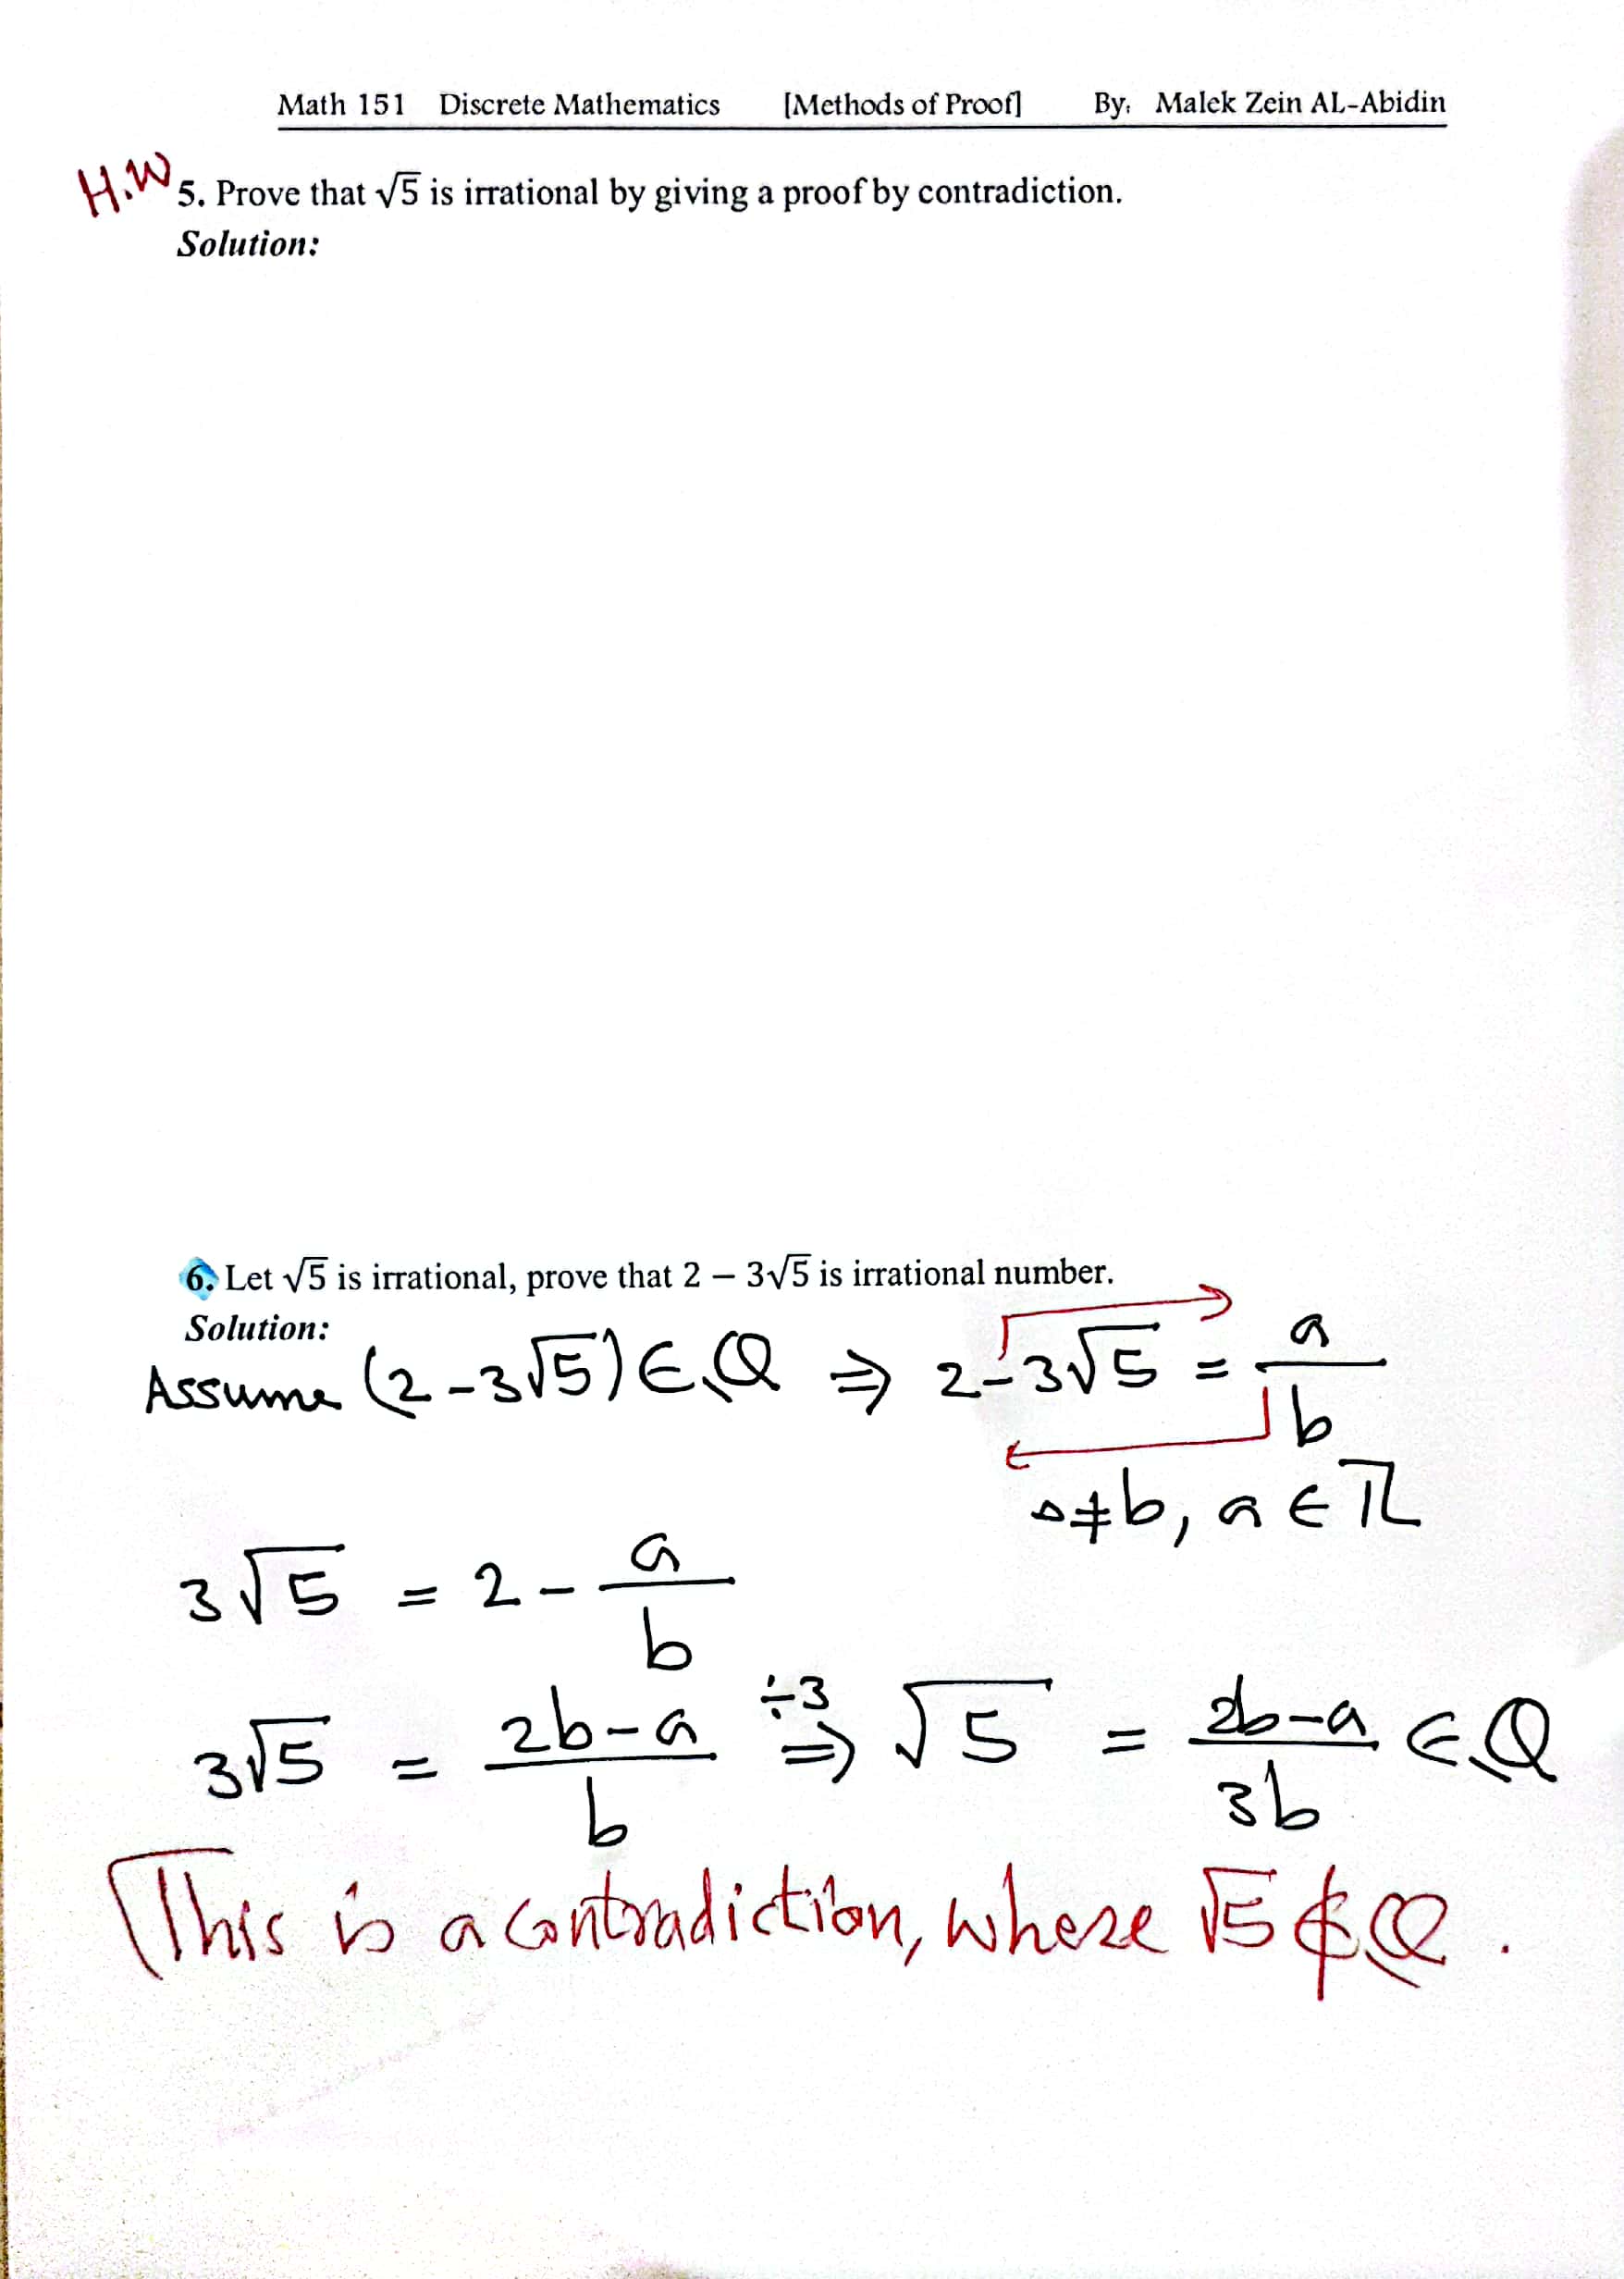 Math 151 Discrete Mathematics [Methods of Proof] By: Malek Zein AL-Abidin
H.W 5. Prove that √5 is irrational by giving a proof by contradiction.
Solution:
6. Let √5 is irrational, prove that 2 − 3√5 is irrational number.
Solution:
Assume (2-3√5) ∈ Q ⇒ 2-3√5 = a/b
0≠b, a ∈ Z
3√5 = 2 - a/b
3√5 = 2b-a/b ÷3 ⇒ √5 = 2b-a/3b ∈ Q
This is a contradiction, where √5 ∉ Q.